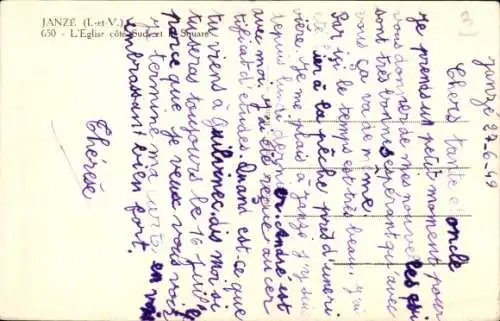 JANZÉ (I.-et-V.)
650 - L'Eglise côté Sud et le Square
3
Janzé 27-6-49
Chers tante et oncle
Je prends un petit moment pour
vous donner de mes nouvelles qui
sont très bonnes espérant qu'avec
vous ça va de même.
Par ici le temps est très beau. j'ai
été hier à la pêche près d'une ri
vière. Je me plais à Janzé j'y suis
depuis lundi dernier. André est
avec moi. j'ai été reçue au cer
tificat d'études. Quand est-ce que
tu viens à Guilvinec. dis moi si
tu seras toujours le 16 juil
parce que je veux vous voir
je termine ma carte en vous
embrassant bien fort.
Thérèse.